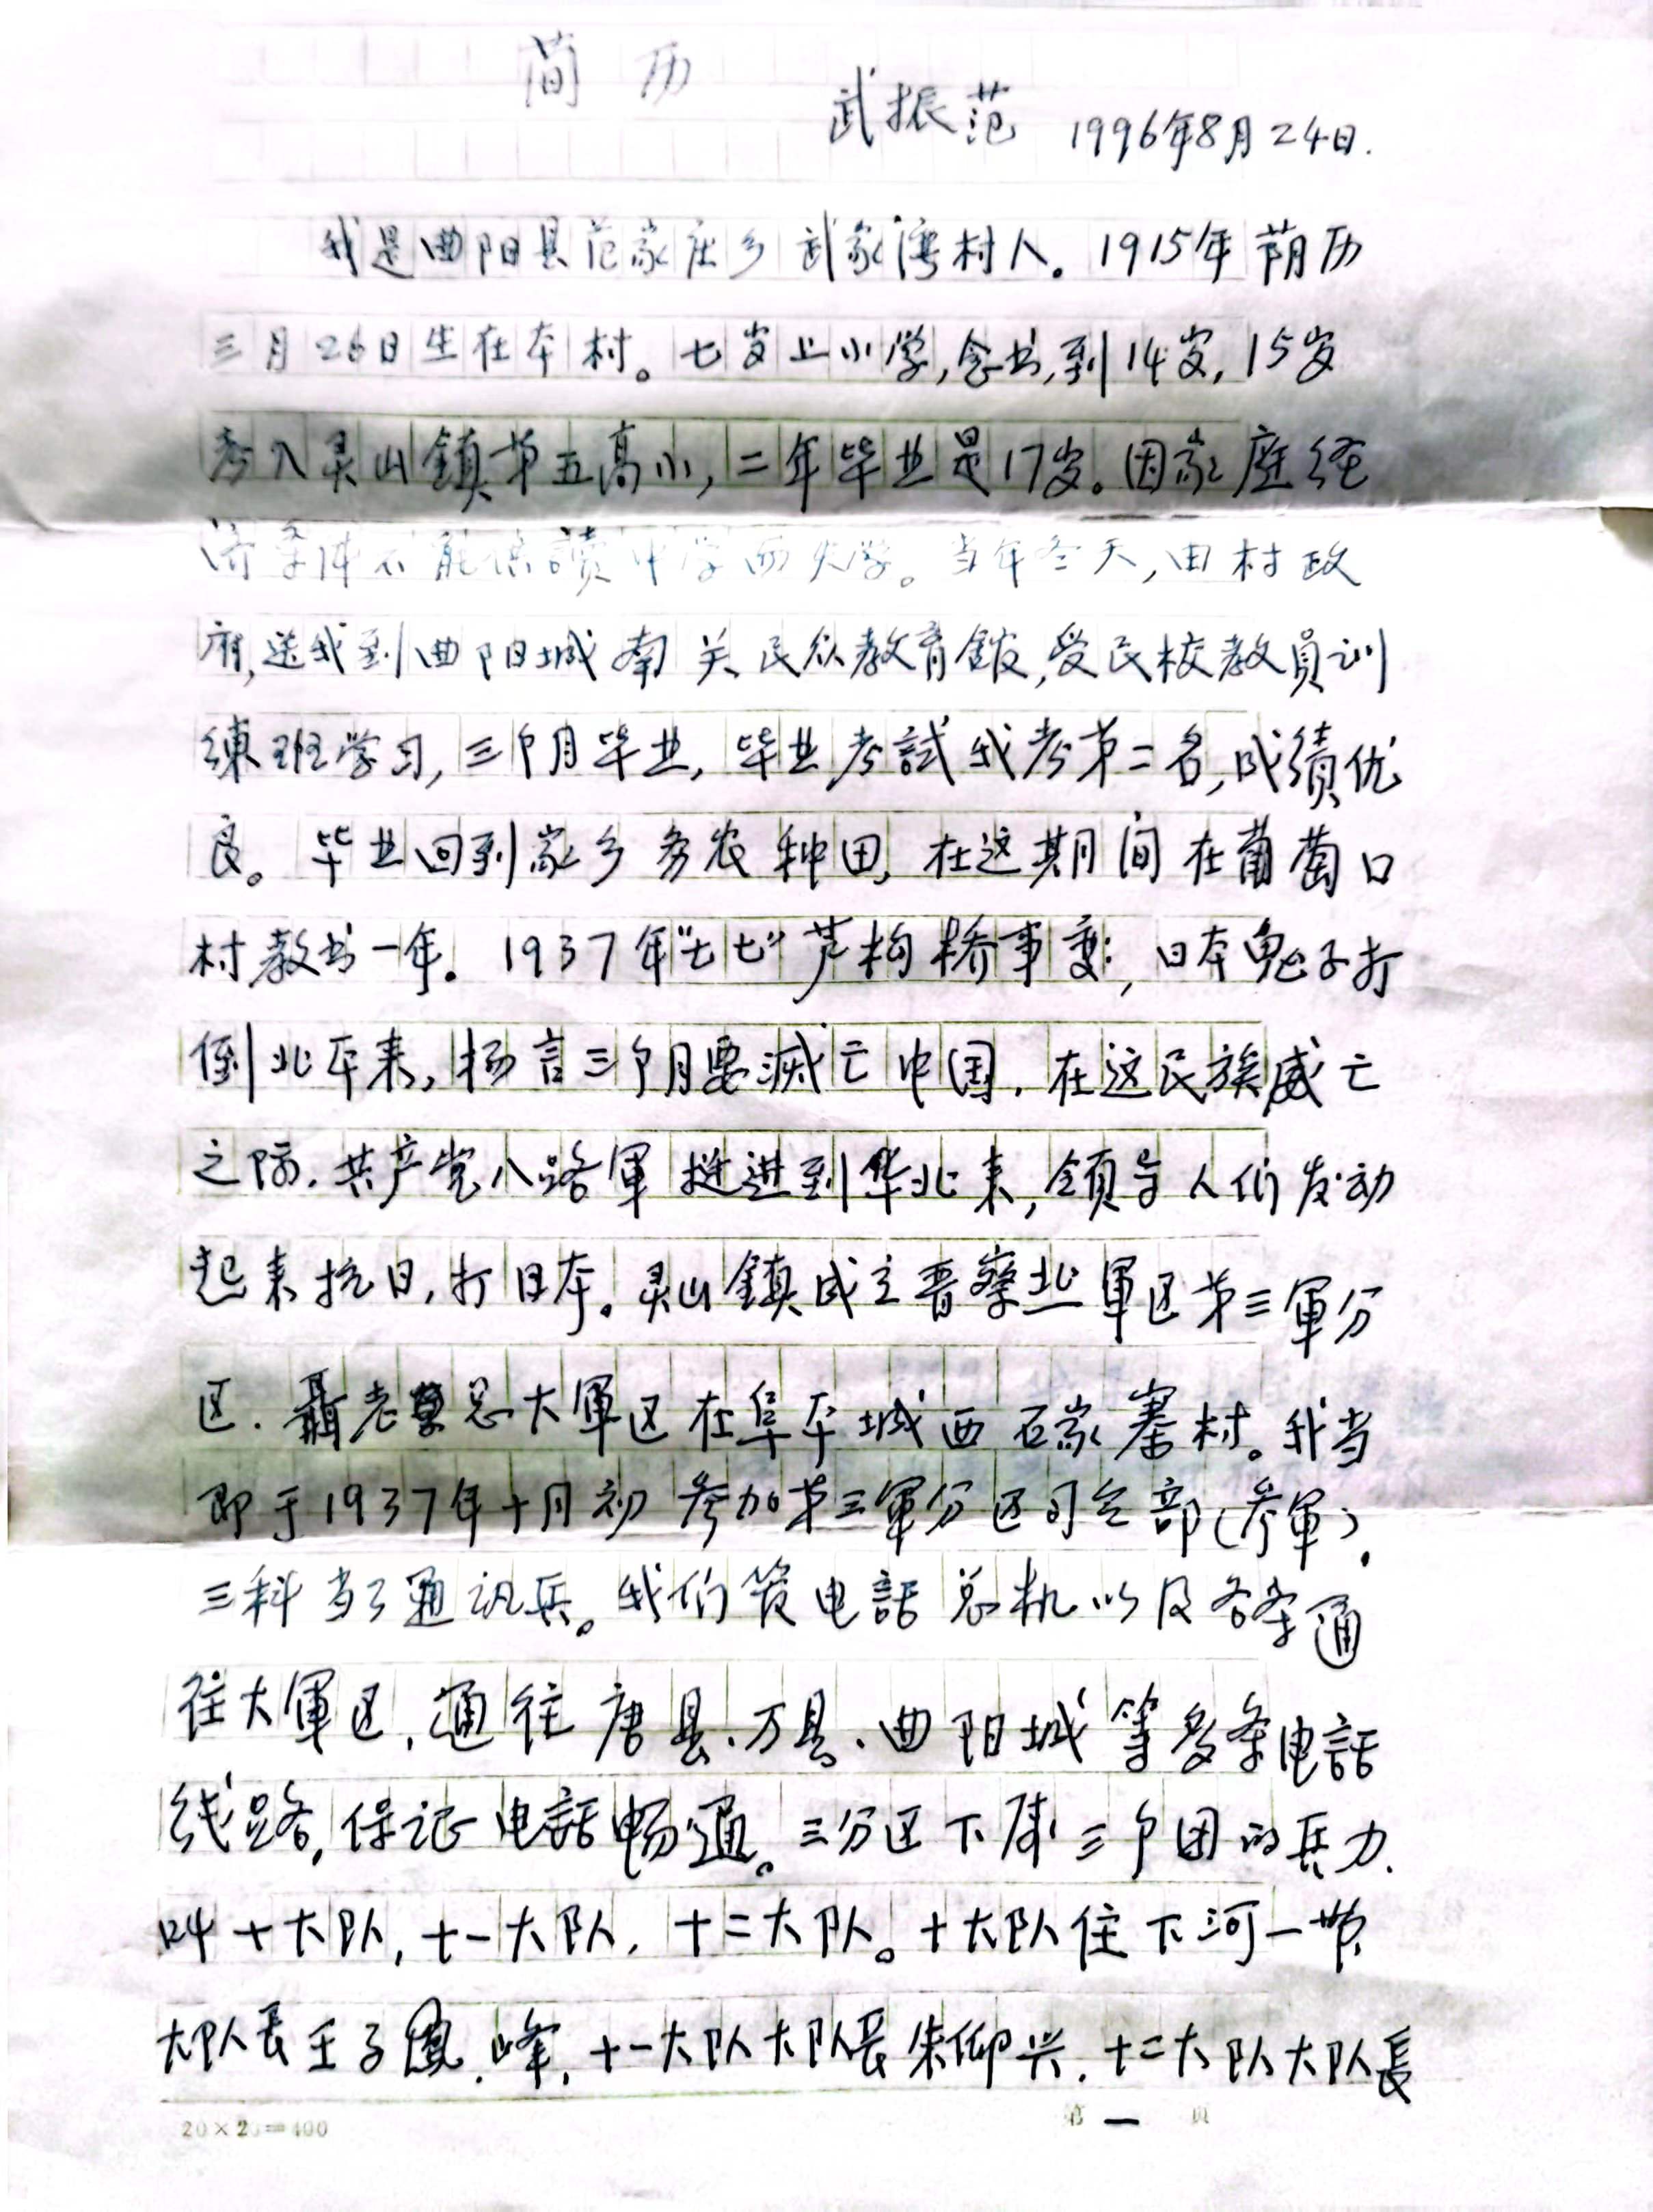 简历
武振范 1996年8月24日.
我是曲阳县范家庄乡武家湾村人。1915年荫历
三月26日生在本村。七岁上小学,念书,到14岁,15岁
考入灵山鎮第五高小,二年毕业是17岁。因家庭经
济条件不能供讀中学而失学。当年冬天,由村政
府,送我到曲阳城南关民众教育舘,受民校教员训
練班学习,三个月毕业,毕业考試我考第二名,成績优
良。毕业回到家乡务农种田,在这期间在葡萄口
村教书一年。1937年“七七”芦构桥事变,日本鬼子打
倒北平来,扬言三个月要滅亡中国.在这民族威亡
之际.共产党八路軍挺进到华北来,領导人们发动
起来抗日,打日本。灵山鎮成立晋察北軍区第三軍分
区.聶老总大軍区在阜平城西石家寨村。我当
即于1937年十月初参加第三軍分区司令部(参軍).
三科当了通讯兵。我们管电話总机以及各条通
往大軍区,通往唐县.万县.曲阳城等多条电話
线路,保证电話畅通。三分区下属三个团的兵力.
叫十大队,十一大队.十二大队。十大队住下河一带.
大队長王子鳳.峰,十一大队大队長朱仰兴.十二大队大队長
20×20=400
第一页